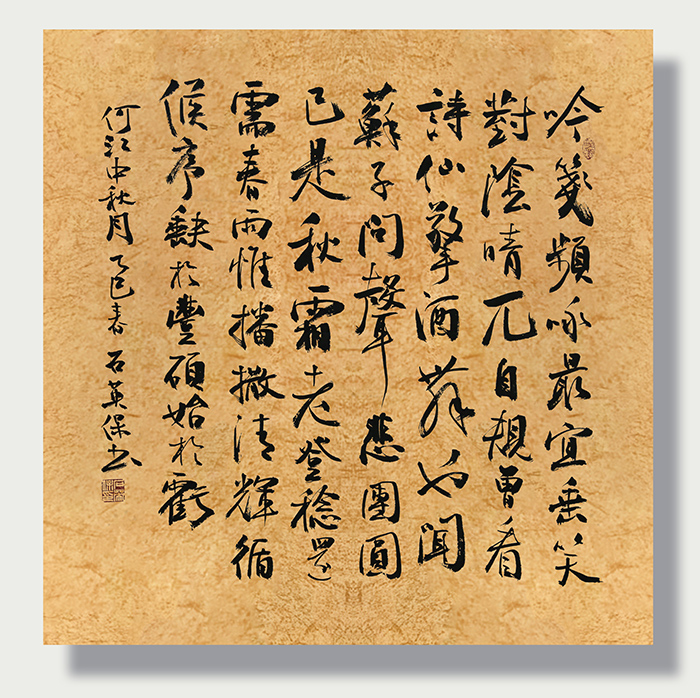 吟箋頻咏最宜垂笑
對陰晴兀自曾看
詩仙擎酒舞也聞
蘇子問聲悲團圓
已是秋霜老登稔還
需春雨惟播撒清輝循
候序缺於豐碩始於虧
何中秋月 乙巳春 石英保书